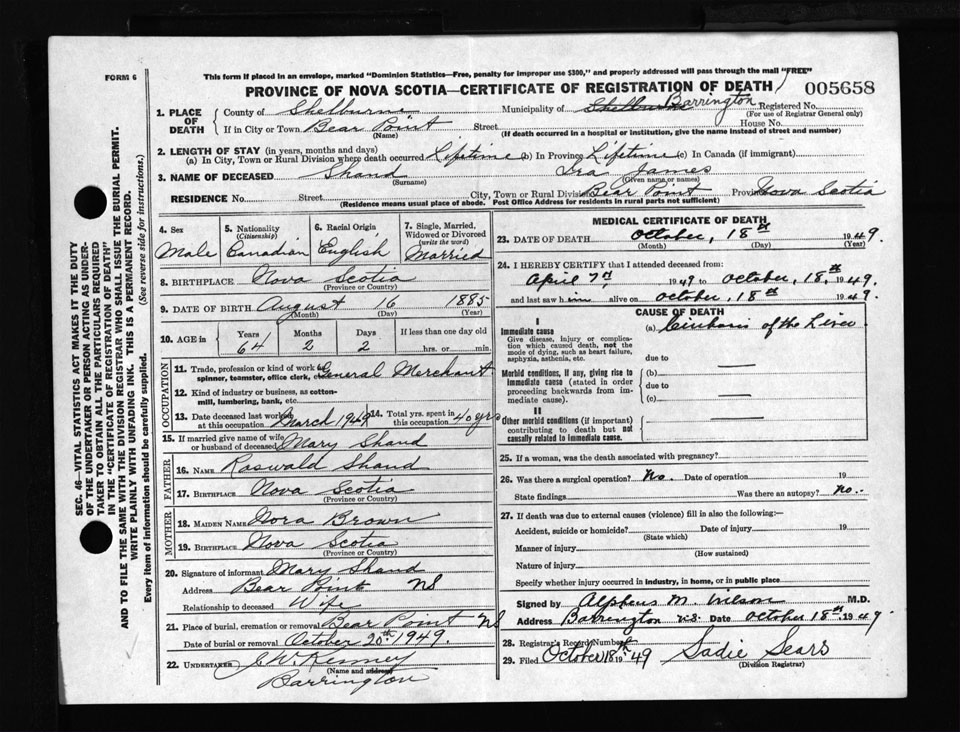 FORM 6
This form if placed in an envelope, marked "Dominion Statistics—Free, penalty for improper use $300," and properly addressed will pass through the mail "FREE"
PROVINCE OF NOVA SCOTIA—CERTIFICATE OF REGISTRATION OF DEATH 005658
1. PLACE OF DEATH
County of Shelburne Municipality of Shelburne Barrington Registered No.
(For use of Registrar General only)
If in City or Town Bear Point Street House No.
(Name) (If death occurred in a hospital or institution, give the name instead of street and number)
2. LENGTH OF STAY (in years, months and days)
(a) In City, Town or Rural Division where death occurred Lifetime (b) In Province Lifetime (c) In Canada (if immigrant)
3. NAME OF DECEASED Shand Ira James
(Surname) (Given name or names)
RESIDENCE No. Street City, Town or Rural Division Bear Point Province Nova Scotia
(Residence means usual place of abode. Post Office Address for residents in rural parts not sufficient)
SEC. 46—VITAL STATISTICS ACT MAKES IT THE DUTY
OF THE UNDERTAKER OR PERSON ACTING AS UNDER-
TAKER TO OBTAIN ALL THE PARTICULARS REQUIRED
IN THE "CERTIFICATE OF REGISTRATION OF DEATH"
AND TO FILE THE SAME WITH THE DIVISION REGISTRAR WHO SHALL ISSUE THE BURIAL PERMIT.
WRITE PLAINLY WITH UNFADING INK. THIS IS A PERMANENT RECORD.
Every item of information should be carefully supplied. (See reverse side for instructions.)
4. Sex 5. Nationality (Citizenship) 6. Racial Origin 7. Single, Married, Widowed or Divorced (write the word)
Male Canadian English Married
8. BIRTHPLACE Nova Scotia
(Province or Country)
9. DATE OF BIRTH August 16 1885
(Month) (Day) (Year)
10. AGE in Years Months Days If less than one day old
64 2 2 hrs. or min.
OCCUPATION
11. Trade, profession or kind of work as General Merchant
spinner, teamster, office clerk, etc.
12. Kind of industry or business, as cotton-
mill, lumbering, bank, etc.
13. Date deceased last worked at this occupation March 1949 14. Total yrs. spent in this occupation 40 yrs
15. If married give name of wife or husband of deceased Mary Shand
FATHER
16. NAME Roswald Shand
17. BIRTHPLACE Nova Scotia
(Province or Country)
MOTHER
18. MAIDEN NAME Nora Brown
19. BIRTHPLACE Nova Scotia
(Province or Country)
20. Signature of informant Mary Shand
Address Bear Point NS
Relationship to deceased Wife
21. Place of burial, cremation or removal Bear Point NS
Date of burial or removal October 20th 1949.
22. UNDERTAKER C W Kenney
(Name and address)
Barrington
MEDICAL CERTIFICATE OF DEATH
23. DATE OF DEATH October, 18th 1949.
(Month) (Day) (Year)
24. I HEREBY CERTIFY that I attended deceased from:
April 7th, 1949 to October, 18th 1949.
and last saw him alive on October, 18th 1949.
CAUSE OF DEATH
I
Immediate cause (a) Cirrhosis of the Liver
Give disease, injury or complica-
tion which caused death, not the
mode of dying, such as heart failure,
asphyxia, asthenia, etc.
due to
Morbid conditions, if any, giving rise to (b)
immediate cause (stated in order due to
proceeding backwards from im-
mediate cause). (c)
II
Other morbid conditions (if important)
contributing to death but not
causally related to immediate cause.
25. If a woman, was the death associated with pregnancy?
26. Was there a surgical operation? No. Date of operation 19
State findings Was there an autopsy? No.
27. If death was due to external causes (violence) fill in also the following:—
Accident, suicide or homicide? Date of injury 19
(State which)
Manner of injury
(How sustained)
Nature of injury
Specify whether injury occurred in industry, in home, or in public place
Signed by Alpheus M. Wilson M.D.
Address Barrington N.S. Date October 18th 1949
28. Registrar's Record Number
29. Filed October 18th 1949 Sadie Sears
(Division Registrar)